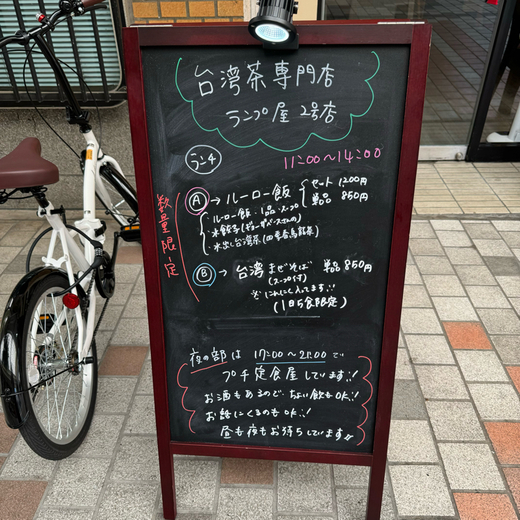 台湾茶専門店
ランプ屋 2号店
ランチ 11:00〜14:00
数量限定
A → ルーロー飯 セット 1200円
単品 850円
・ルーロー飯・1品・スープ
・水餃子
・水出し台湾茶(四季春烏龍茶)
B → 台湾まぜそば 単品 850円
(スープ付)
※にんにく入ってます!!
(1日5食限定)
夜の部は 17:00〜21:00で
プチ定食屋しています!!
お酒もあるので、ちょい飲もOK!!
お話にくるのもOK!!
昼も夜もお待ちしています!!